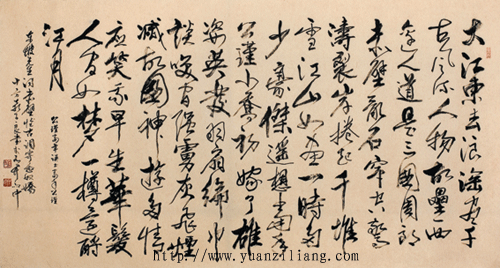 大江东去浪淘尽千
古风流人物故壘西
边人道是三國周郎
赤壁乱石穿空驚
濤裂岸捲起千堆
雪江山如画一时多
少豪傑遥想当年
公謹小喬初嫁了雄
姿英发羽扇纶巾
談笑间强虜灰飛煙
滅故國神游多情
应笑我早生華髮
人间如梦一樽还酹
江月
http://www.yuanziliang.com